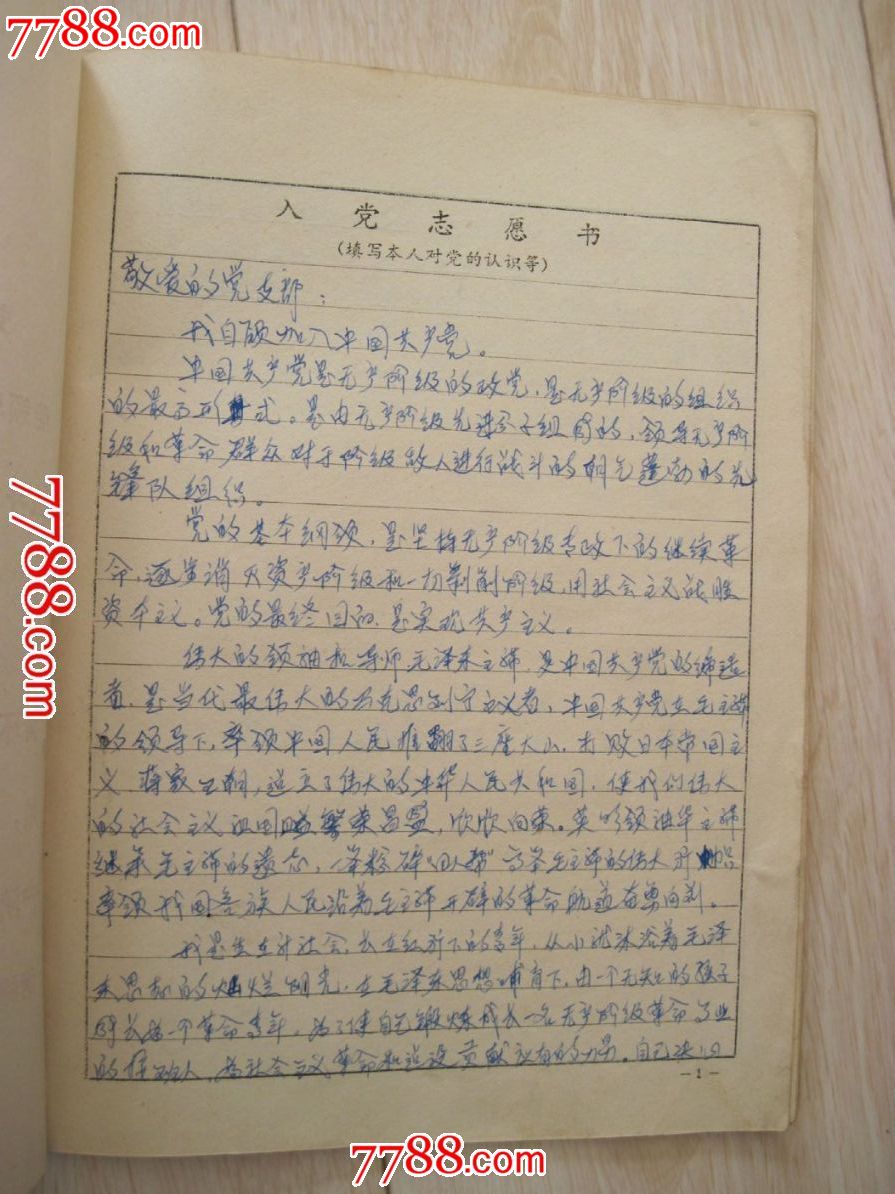 7788.com
7788.com
入党志愿书
(填写本人对党的认识等)
敬爱的党支部：
我自愿加入中国共产党。
中国共产党是无产阶级的政党，是无产阶级的组织
的最高形式。是由无产阶级先进分子组成的，领导无产阶
级和革命群众对于阶级敌人进行战斗的朝气蓬勃的先
锋队组织。
党的基本纲领，是坚持无产阶级专政下的继续革
命，逐步消灭资产阶级和一切剥削阶级，用社会主义战胜
资本主义。党的最终目的，是实现共产主义。
伟大的领袖和导师毛泽东主席，是中国共产党的缔造
者，是当代最伟大的马克思列宁主义者，中国共产党在毛主席
的领导下，率领中国人民推翻了三座大山，打败日本帝国主
义，蒋家王朝，建立了伟大的中华人民共和国，使我们伟大
的社会主义祖国繁荣昌盛，欣欣向荣。英明领袖华主席
继承毛主席的遗志，一举粉碎“四人帮”高举毛主席的伟大旗帜
率领我国各族人民沿着毛主席开辟的革命航道奋勇向前。
我是生在新社会，长在红旗下的青年，从小就沐浴着毛泽
东思想的灿烂阳光，在毛泽东思想哺育下，由一个无知的孩子
成长为一个革命青年。为了使自己锻炼成长一名无产阶级革命事业
的接班人，为社会主义革命和建设贡献应有的力量。自己决心
-1-
7788.com
7788.com
7788.com